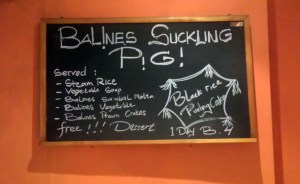 BALINES SUCKLING
P!G!
Served :
- Steam Rice
- Vegetable Soup
- Balines Sambal Matta
- Balines Vegetable
- Balines Prawn Crakes
free !!! Dessert
Black rice
Puding Cake
1 Day B. 4